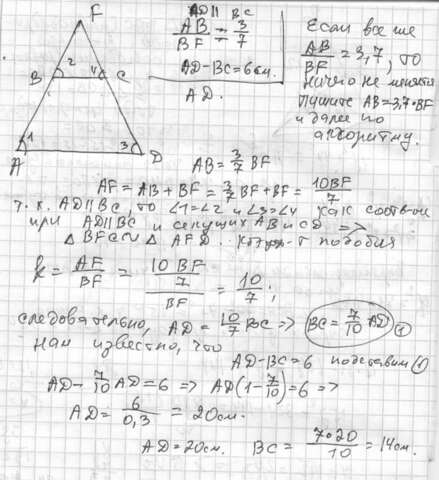 F
B 2 4 C
A 1 3 D
AD || BC
AB/BF = 3/7
AD-BC=6см.
AD.
Если все же
AB/BF = 3,7, то
ничего не меняется
Пишите AB=3,7·BF
и далее по
алгоритму.
AB = 3/7 BF
AF = AB + BF = 3/7 BF + BF = 10BF/7
Т.к. AD||BC, то ∠1=∠2 и ∠3=∠4 как соотв-ы
при AD||BC и секущих AB и CD =>
△ BFC ∾ △ AFD. подобия
k = AF/BF = (10 BF/7)/BF = 10/7;
следовательно, AD = 10/7 BC => BC = 7/10 AD ①
Нам известно, что
AD-BC=6 подставим ①
AD - 7/10 AD = 6 => AD(1 - 7/10) = 6 =>
AD = 6/0,3 = 20см.
AD=20см. BC = 7·20/10 = 14см.